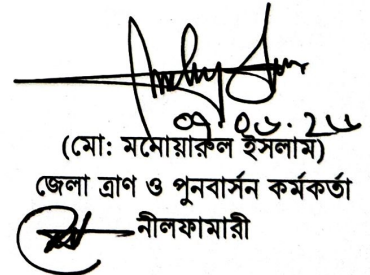 (মো: মমোয়ারুল ইসলাম)
জেলা ত্রাণ ও পুনবার্সন কর্মকর্তা
নীলফামারী